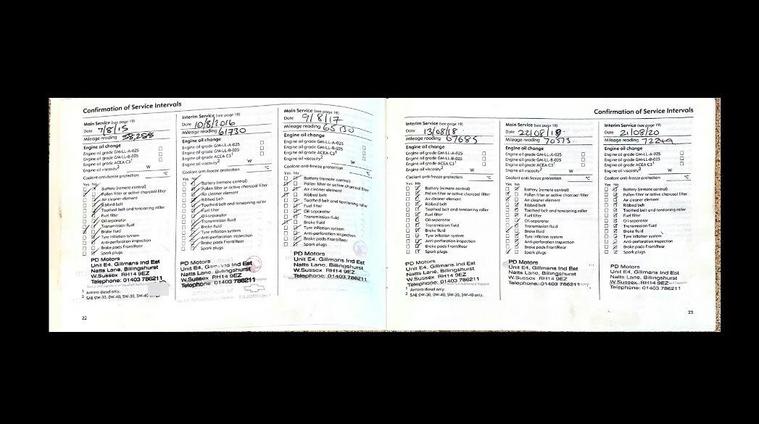 Confirmation of Service Intervals
Main Service (see page 18)
Date 7/8/15
Mileage reading 58,285
Engine oil change
Engine oil grade GM-LL-A-025
Engine oil grade GM-LL-B-025
Engine oil grade ACEA C3
Engine oil viscosity² W
Coolant anti-freeze protection °C
Yes No
Battery (remote control)
Pollen filter or active charcoal filter
Air cleaner element
Ribbed belt
Toothed belt and tensioning roller
Fuel filter
Oil separator
Transmission fluid
Brake fluid
Tyre inflation system
Anti-perforation inspection
Brake pads Front/Rear
Spark plugs
PD Motors
Unit E4, Gillmans Ind Est
Natts Lane, Billingshurst
W.Sussex RH14 9EZ
Telephone: 01403 786211
² SAE 0W-30, 0W-40, 5W-30, 5W-40
22
Interim Service (see page 18)
Date 10/8/2016
Mileage reading 61730
Engine oil change
Engine oil grade GM-LL-A-025
Engine oil grade GM-LL-B-025
Engine oil grade ACEA C3
Engine oil viscosity² W
Coolant anti-freeze protection °C
Yes No
Battery (remote control)
Pollen filter or active charcoal filter
Air cleaner element
Ribbed belt
Toothed belt and tensioning roller
Fuel filter
Oil separator
Transmission fluid
Brake fluid
Tyre inflation system
Anti-perforation inspection
Brake pads Front/Rear
Spark plugs
PD Motors
Unit E4, Gillmans Ind Est
Natts Lane, Billingshurst
W.Sussex RH14 9EZ
Telephone: 01403 786211
Main Service (see page 18)
Date 9/8/17
Mileage reading 65130
Engine oil change
Engine oil grade GM-LL-A-025
Engine oil grade GM-LL-B-025
Engine oil grade ACEA C3
Engine oil viscosity² W
Coolant anti-freeze protection °C
Yes No
Battery (remote control)
Pollen filter or active charcoal filter
Air cleaner element
Ribbed belt
Toothed belt and tensioning roller
Fuel filter
Oil separator
Transmission fluid
Brake fluid
Tyre inflation system
Anti-perforation inspection
Brake pads Front/Rear
Spark plugs
PD Motors
Unit E4, Gillmans Ind Est
Natts Lane, Billingshurst
W.Sussex RH14 9EZ
Telephone: 01403 786211
Confirmation of Service Intervals
Interim Service (see page 18)
Date 13/08/18
Mileage reading 67685
Engine oil change
Engine oil grade GM-LL-A-025
Engine oil grade GM-LL-B-025
Engine oil grade ACEA C3
Engine oil viscosity² W
Coolant anti-freeze protection °C
Yes No
Battery (remote control)
Pollen filter or active charcoal filter
Air cleaner element
Ribbed belt
Toothed belt and tensioning roller
Fuel filter
Oil separator
Transmission fluid
Brake fluid
Tyre inflation system
Anti-perforation inspection
Brake pads Front/Rear
Spark plugs
PD Motors
Unit E4, Gillmans Ind Est
Natts Lane, Billingshurst
W.Sussex RH14 9EZ
Telephone: 01403 786211
² SAE 0W-30, 0W-40, 5W-30, 5W-40 only.
Main Service (see page 18)
Date 22/08/19
Mileage reading 70573
Engine oil change
Engine oil grade GM-LL-A-025
Engine oil grade GM-LL-B-025
Engine oil grade ACEA C3
Engine oil viscosity² W
Coolant anti-freeze protection °C
Yes No
Battery (remote control)
Pollen filter or active charcoal filter
Air cleaner element
Ribbed belt
Toothed belt and tensioning roller
Fuel filter
Oil separator
Transmission fluid
Brake fluid
Tyre inflation system
Anti-perforation inspection
Brake pads Front/Rear
Spark plugs
PD Motors
Unit E4, Gillmans Ind Est
Natts Lane, Billingshurst
W.Sussex RH14 9EZ
Telephone: 01403 786211
Interim Service (see page 18)
Date 21/08/20
Mileage reading
Engine oil change
Engine oil grade GM-LL-A-025
Engine oil grade GM-LL-B-025
Engine oil grade ACEA C3
Engine oil viscosity² W
Coolant anti-freeze protection °C
Yes No
Battery (remote control)
Pollen filter or active charcoal filter
Air cleaner element
Ribbed belt
Toothed belt and tensioning roller
Fuel filter
Oil separator
Transmission fluid
Brake fluid
Tyre inflation system
Anti-perforation inspection
Brake pads Front/Rear
Spark plugs
PD Motors
Unit E4, Gillmans Ind Est
Natts Lane, Billingshurst
W.Sussex RH14 9EZ
Telephone: 01403 786211
23